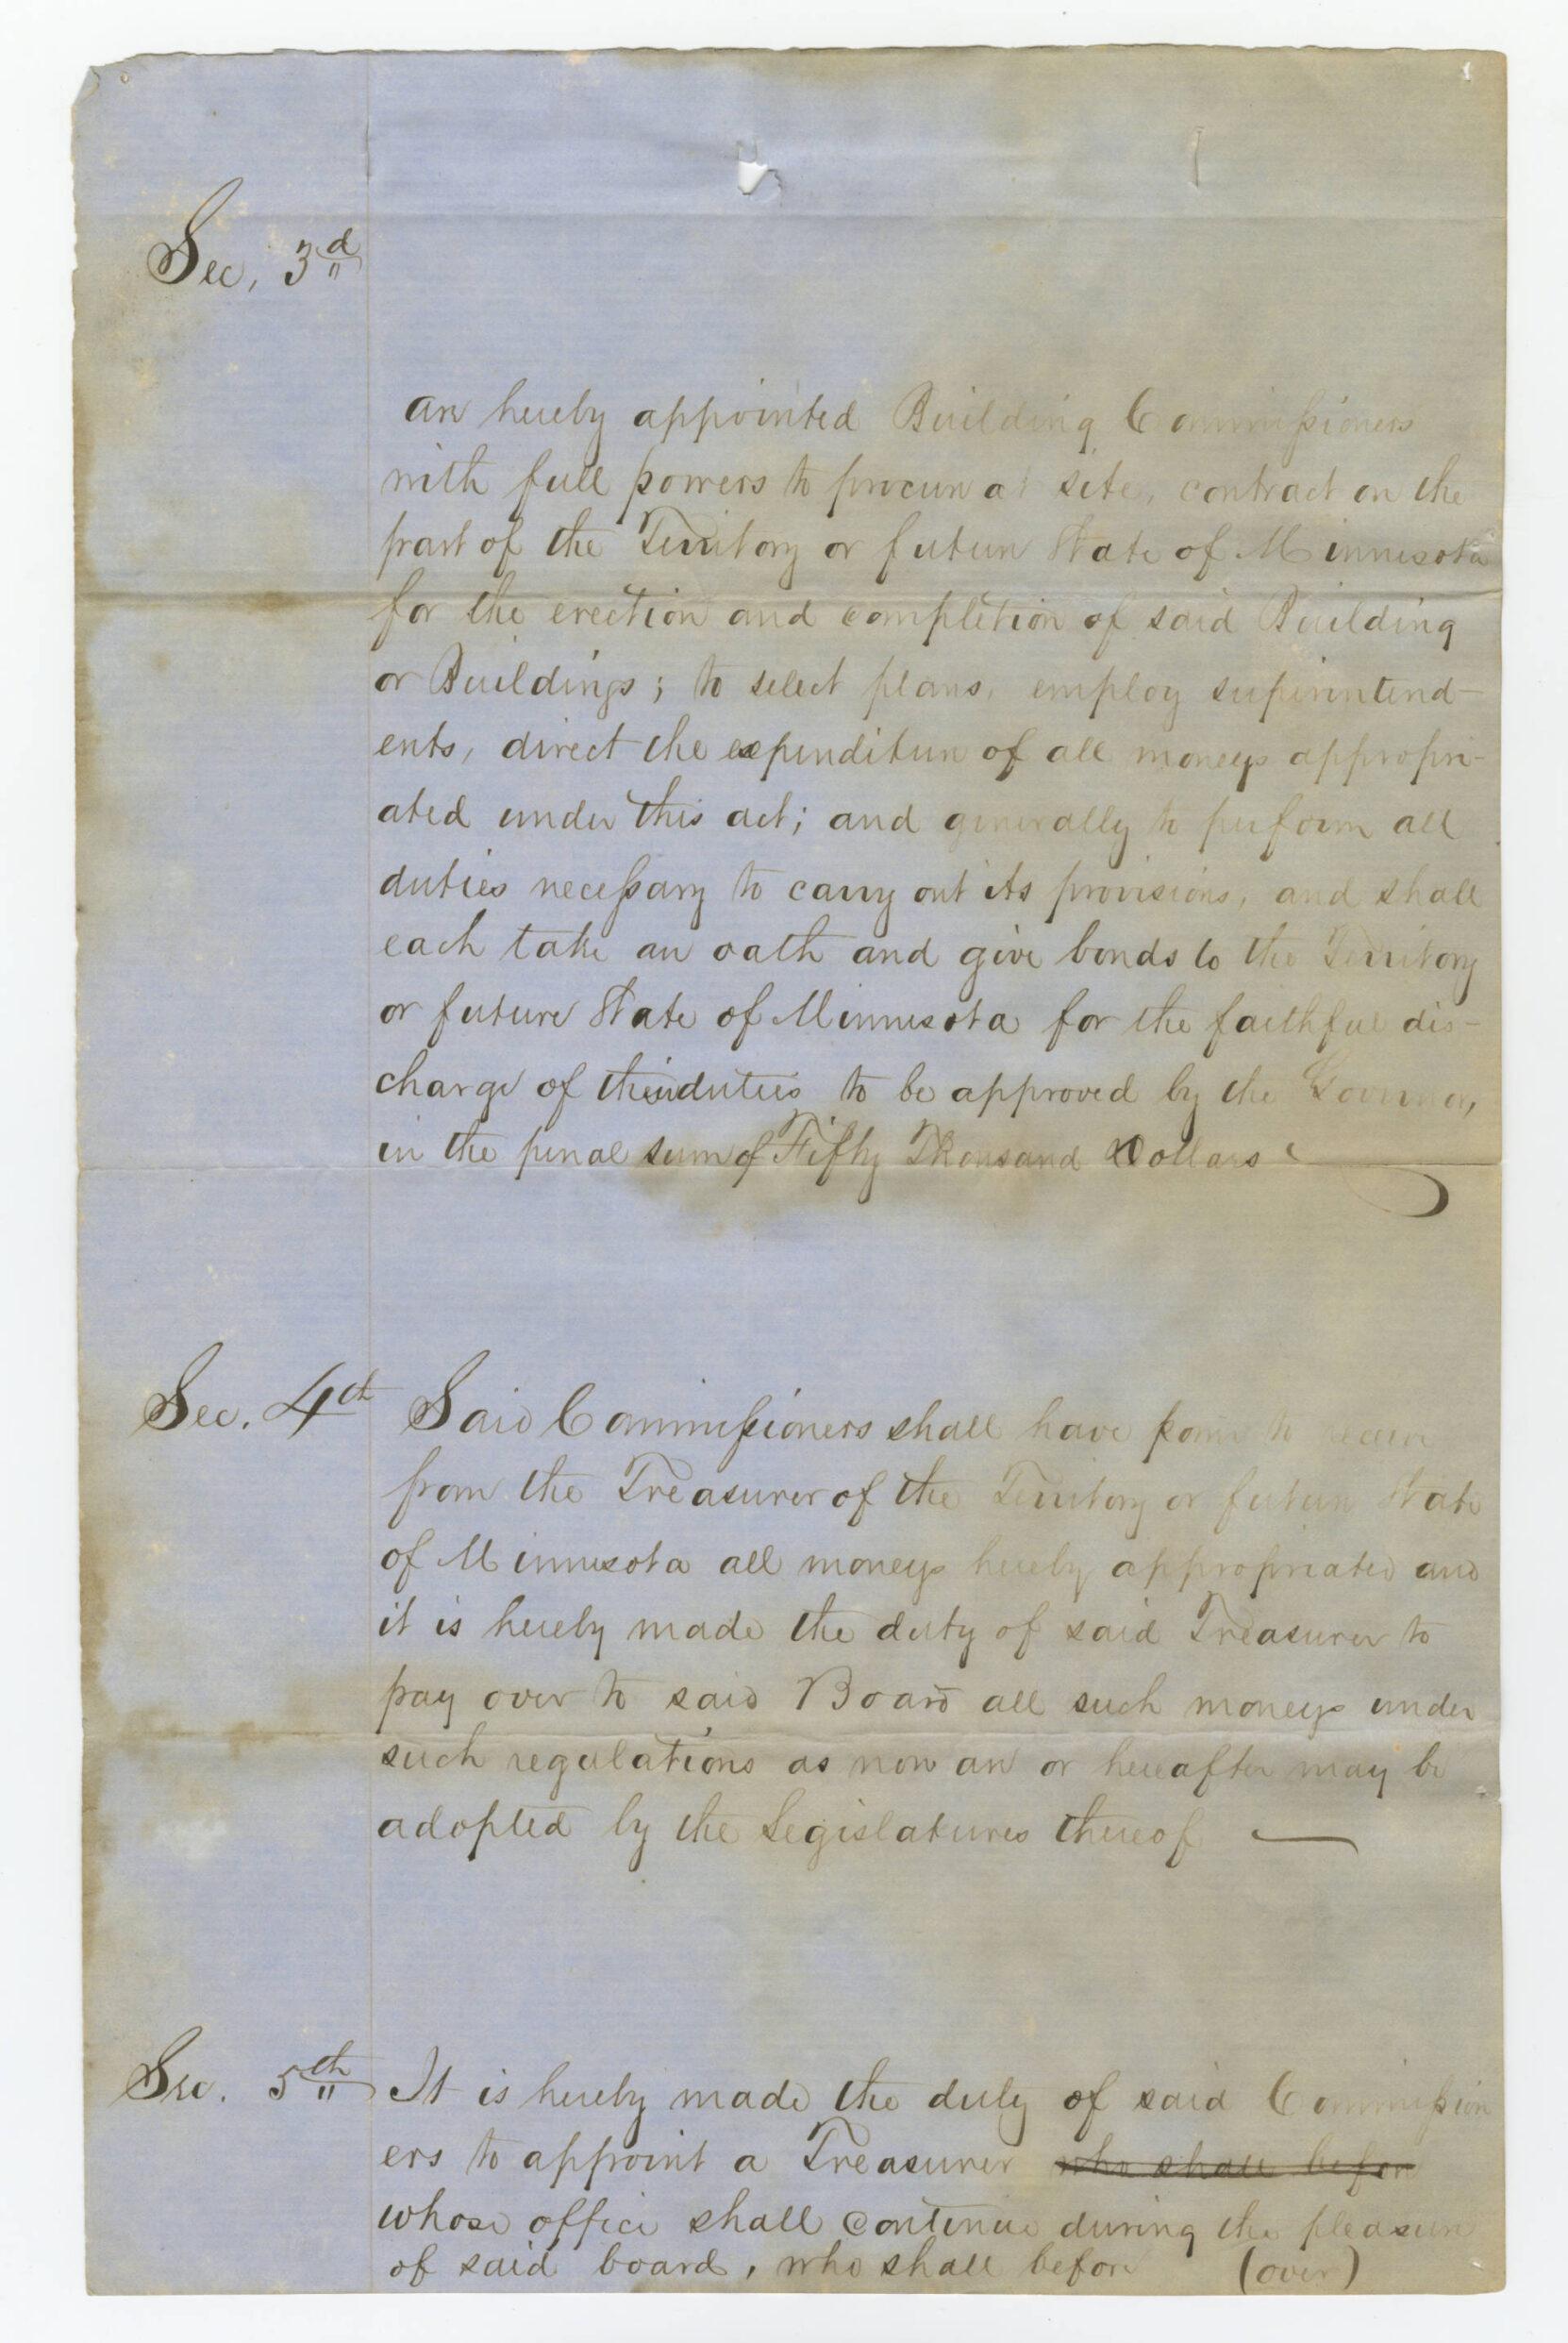 Sec, 3d
are hereby appointed Building Commissioners
with full powers to procure a site, contract on the
part of the Territory or future State of Minnesota
for the erection and completion of said Building
or Buildings; to select plans, employ superintend-
ents, direct the expenditure of all moneys appropri-
ated under this act; and generally to perform all
duties necessary to carry out its provisions, and shall
each take an oath and give bonds to the Territory
or future State of Minnesota for the faithful dis-
charge of their duties to be approved by the Governor,
in the penal sum of Fifty Thousand Dollars
Sec. 4th Said Commissioners shall have power to receive
from the Treasurer of the Territory or future State
of Minnesota all moneys hereby appropriated and
it is hereby made the duty of said Treasurer to
pay over to said Board all such moneys under
such regulations as now are or hereafter may be
adopted by the Legislatures thereof —
Sec. 5th It is hereby made the duty of said Commission
ers to appoint a Treasurer who shall before
whose office shall continue during the pleasure
of said board, who shall before (over)